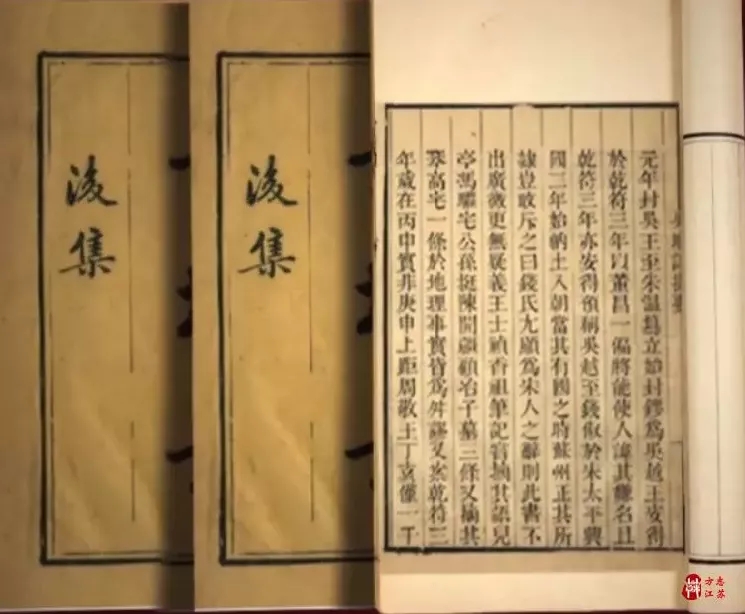 元年封吳王至朱溫篡立始封鏐爲吳越王安得
於乾符三年以董昌一偏將能使人諱其嫌名且
乾符三年亦安得預稱吳越至錢俶於宋太平興
國二年始納土入朝當其有國之時蘇州正其所
隷豈敢斥之曰錢氏尤顯爲宋人之辭則此書不
出廣微更無疑義王士禎香祖筆記嘗摘其語兒
亭馮驩宅公孫挺陳開疆顧冶子墓三條又摘其
琴高宅一條於地理事實皆爲舛謬又案乾符三
年歲在丙申實非庚申上距周敬王丁亥僅一千
吳地記提要
後集
後集
方志
江苏